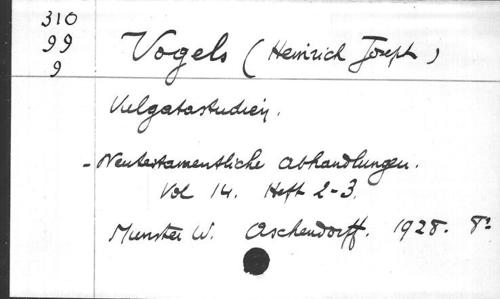 310
99
9
Vogels (Heinrich Joseph)
Vulgatastudien.
- Neutestamentliche Abhandlungen.
Vol 14. Heft 2-3.
Munster W. Aschendorff. 1928. 8°